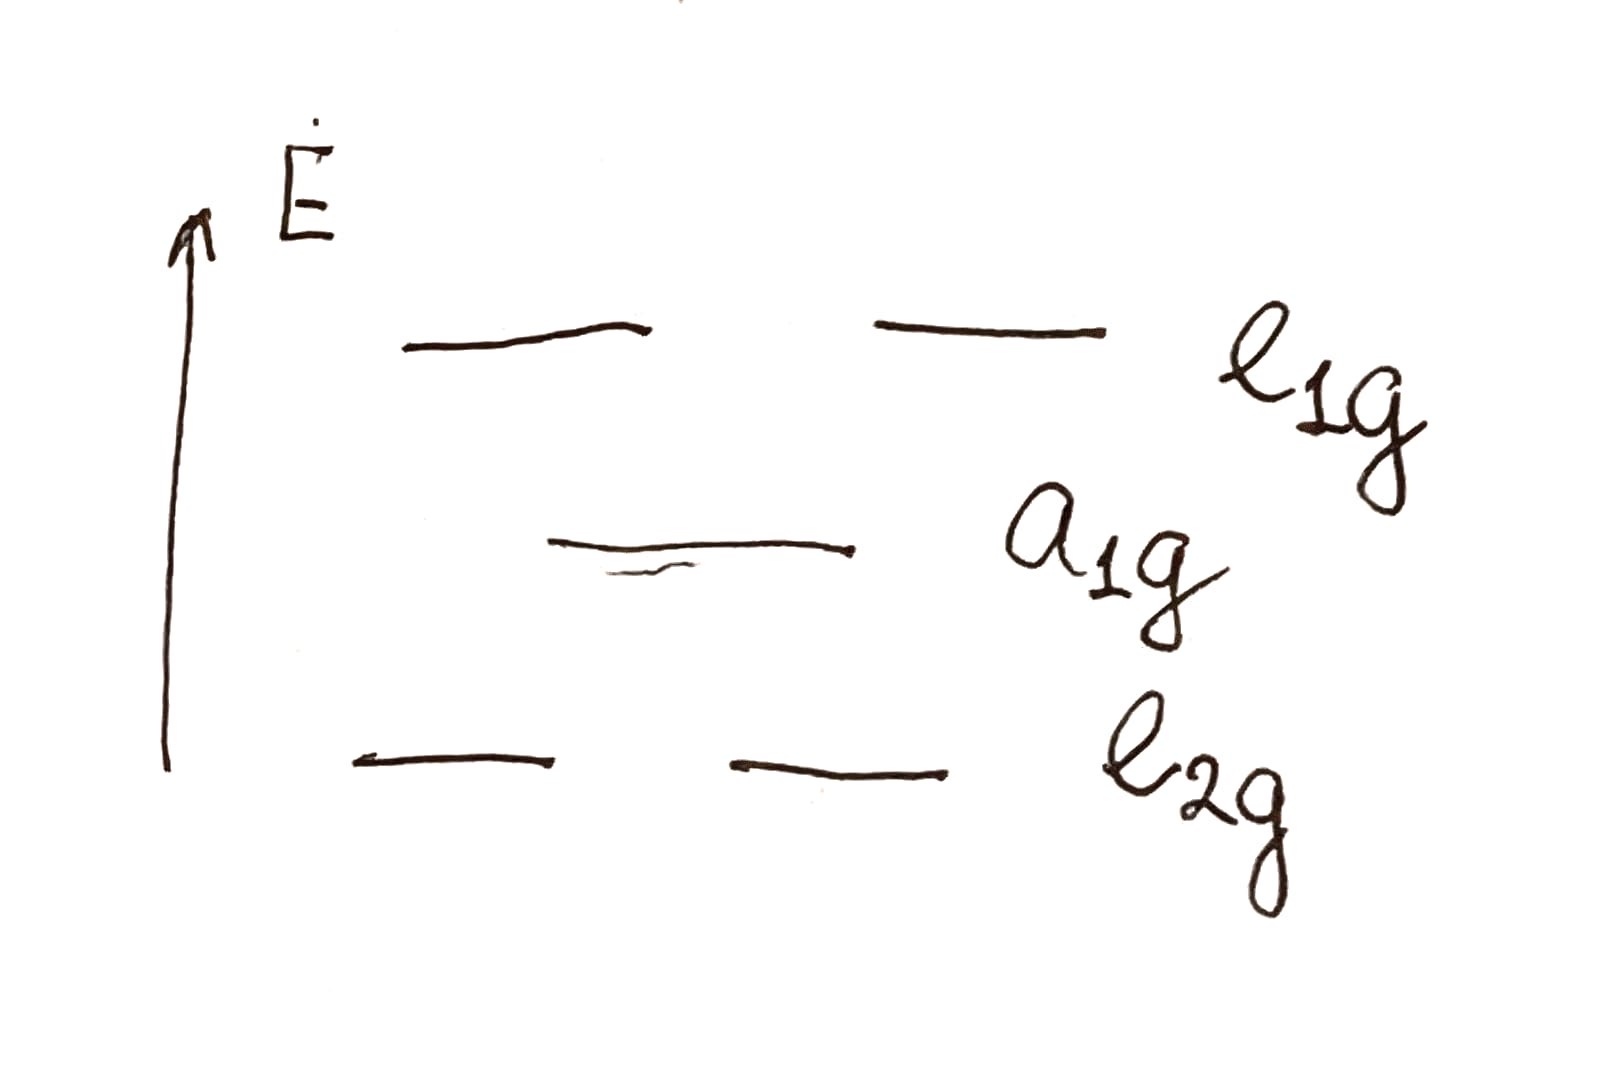 E
e1g
a1g
e2g